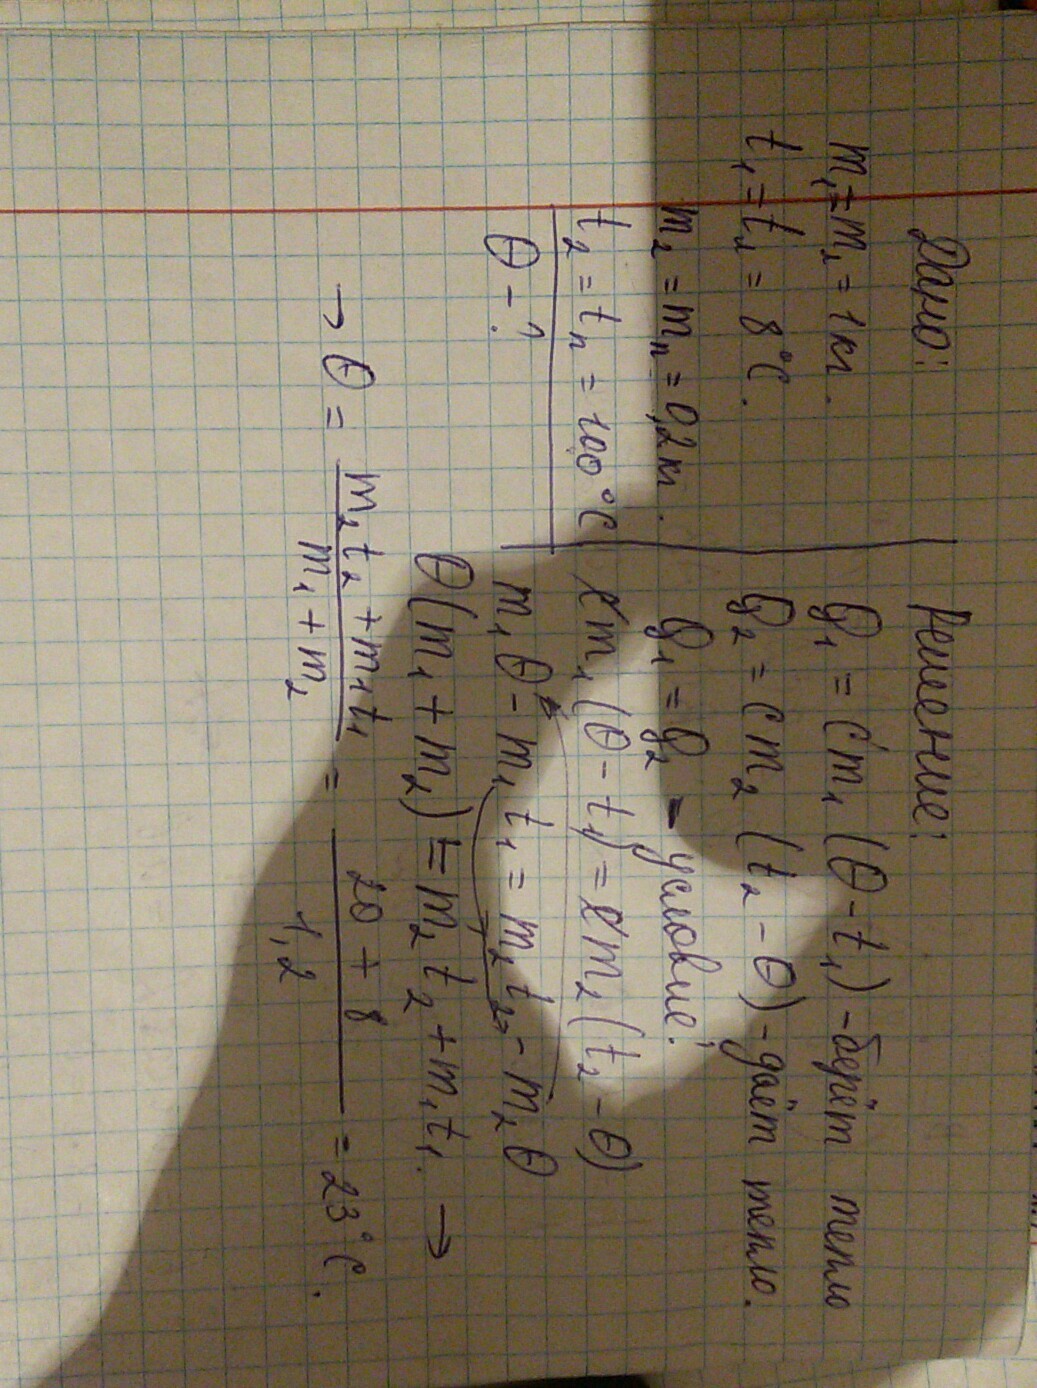 Дано:
m₁ = m₂ = 1кг.
t₁ = t₂ = 8°C.
m₂ = mп = 0,2кг.
t₂ = tп = 100°C
θ - ?
Решение:
Q₁ = cm₁(θ - t₁) - берёт тепло
Q₂ = cm₂(t₂ - θ) - даёт тепло.
Q₁ = Q₂ - условие!
cm₁(θ - t₁) = cm₂(t₂ - θ)
m₁θ - m₁t₁ = m₂t₂ - m₂θ
θ(m₁ + m₂) = m₂t₂ + m₁t₁. →
→ θ = (m₂t₂ + m₁t₁)/(m₁ + m₂) = (20 + 8)/1,2 = 23°C.